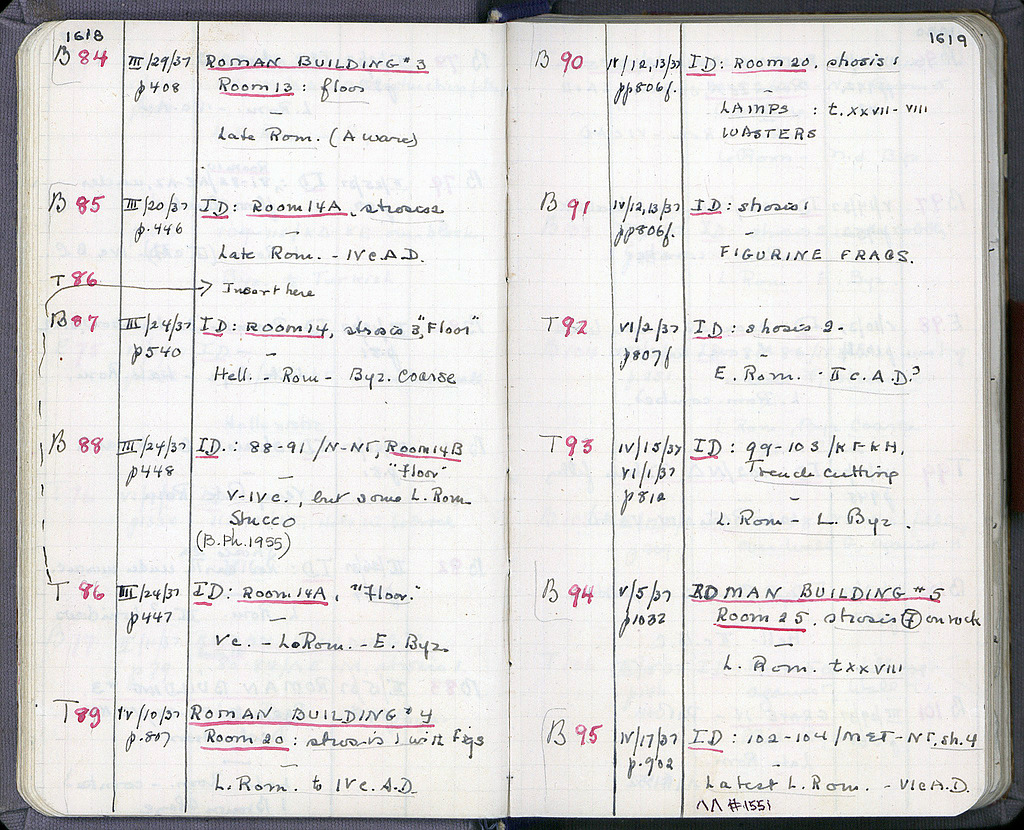 1618
B 84 III/29/37 ROMAN BUILDING #3
p408 Room 13 : floor
–
Late Rom. (A ware)
B 85 III/20/37 ID: Room 14A, strosis 2
p.446 –
Late Rom. - IV c. A.D.
T 86
Insert here
B 87 III/24/37 ID: Room 14, strosis 3, "Floor"
p540 –
Hell. - Rom - Byz. coarse
B 88 III/24/37 ID. : 88-91/N-NΓ, Room 14B
p448 "floor"
–
V-IV c., but some L. Rom
Stucco
(B.Ph. 1955)
T 86 III/24/37 ID: Room 14A, "Floor."
p447 –
V c. - L. Rom. - E. Byz.
T 89 IV/10/37 ROMAN BUILDING #4
p.807 Room 20 : strosis 1 with figs
–
L. Rom. to IV c. A.D.
1619
B 90 IV/12,13/37 ID: Room 20, strosis 1
pp806f. –
LAMPS : t. XXVII-VIII
WASTERS
B 91 IV/12,13/37 ID: strosis 1
pp806f. –
FIGURINE FRAGS.
T 92 VI/2/37 ID: strosis 2.
p807f –
E. Rom. - II c. A.D.?
T 93 IV/15/37 ID: 99-103/KΓ-KH,
VI/1/37 Trench cutting
p812 –
L. Rom - L. Byz.
B 94 V/5/37 ROMAN BUILDING #5
p1032 Room 25, strosis 7 on rock
–
L. Rom. t XXVIII
B 95 IV/17/37 ID: 102-104/MΣT-NΓ, str. 4
p.902
Latest L. Rom. - VI c A.D.
ΛΛ #1551